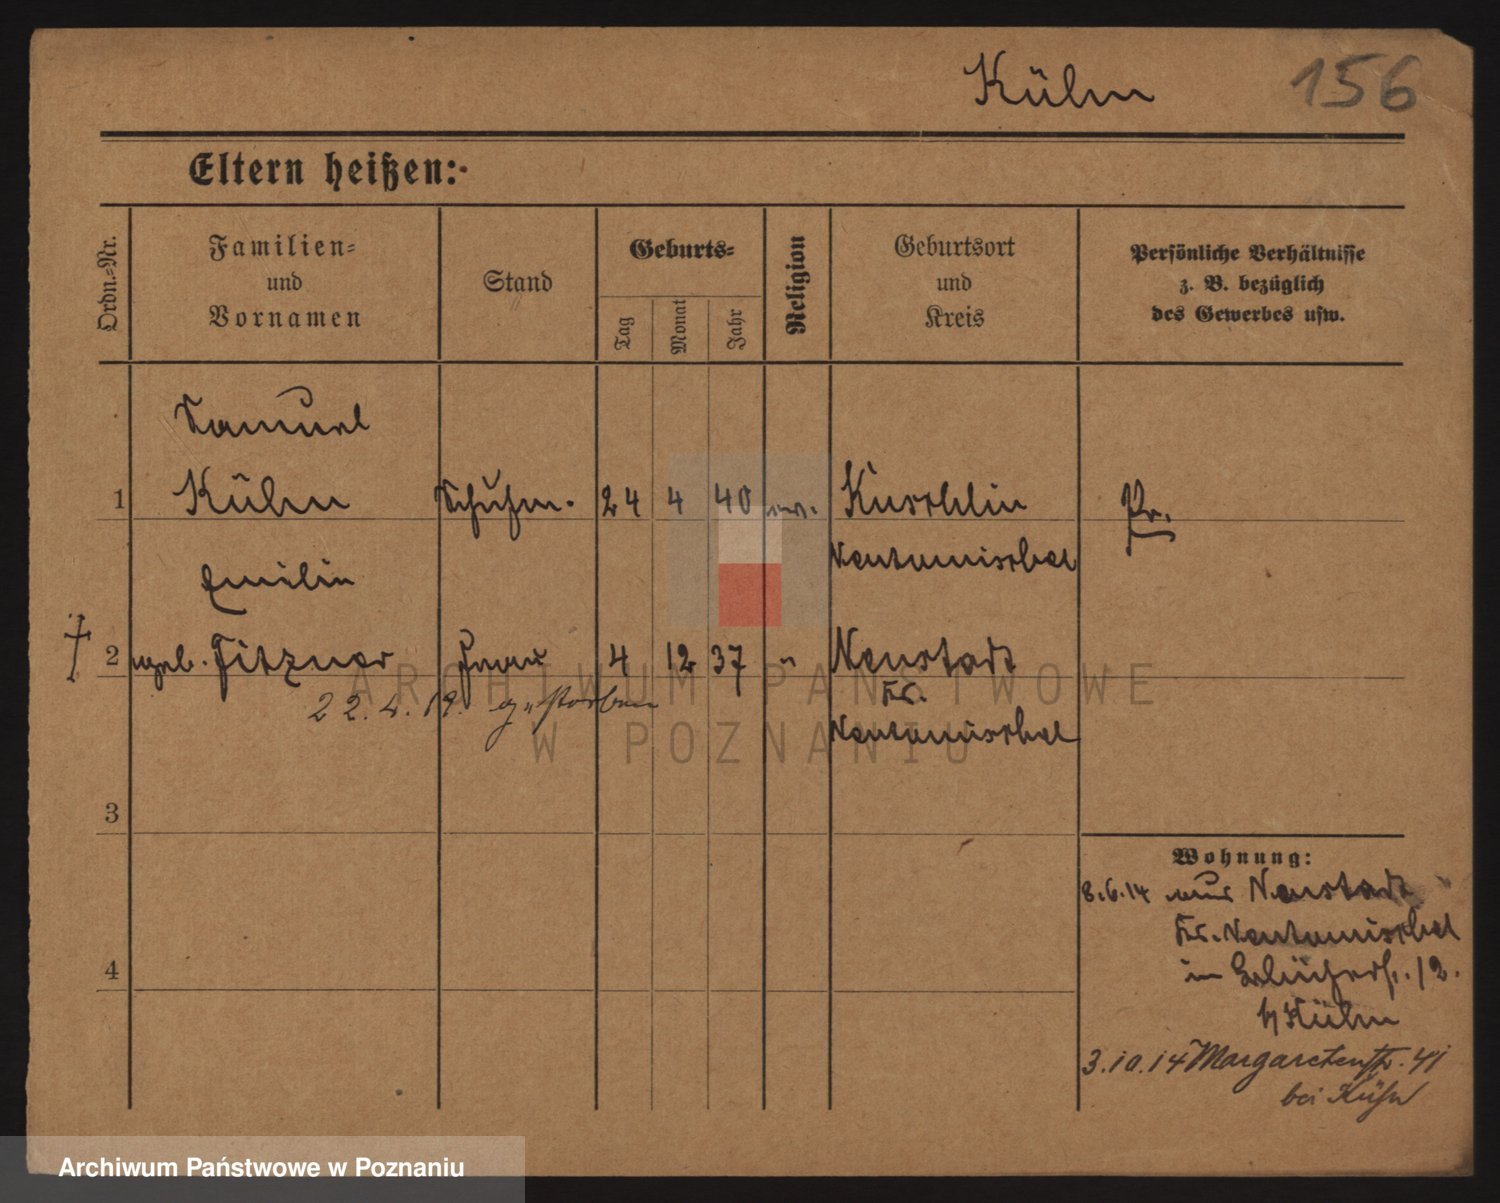 Kühn 156
Eltern heißen:
Ordn.-Nr.
Familien-
und
Vornamen
Stand
Geburts-
Tag
Monat
Jahr
Religion
Geburtsort
und
Kreis
Persönliche Verhältnisse
z. B. bezüglich
des Gewerbes usw.
Samuel
1 Kühn Schuhm. 24 4 40 ev. Kuschlin Pr.
Neutomischel
Emilie
† 2 geb. Fitzner Frau 4 12 37 " Neustadt
22. 4. 19. gestorben Kr.
Neutomischel
3
4
Wohnung:
8.6.14 aus Neustadt
Kr. Neutomischel
in Blücherstr. 12.
b/ Kühn
3.10.14 Margaretenstr. 41
bei Kühn
ARCHIWUM PAŃSTWOWE
W POZNANIU
Archiwum Państwowe w Poznaniu